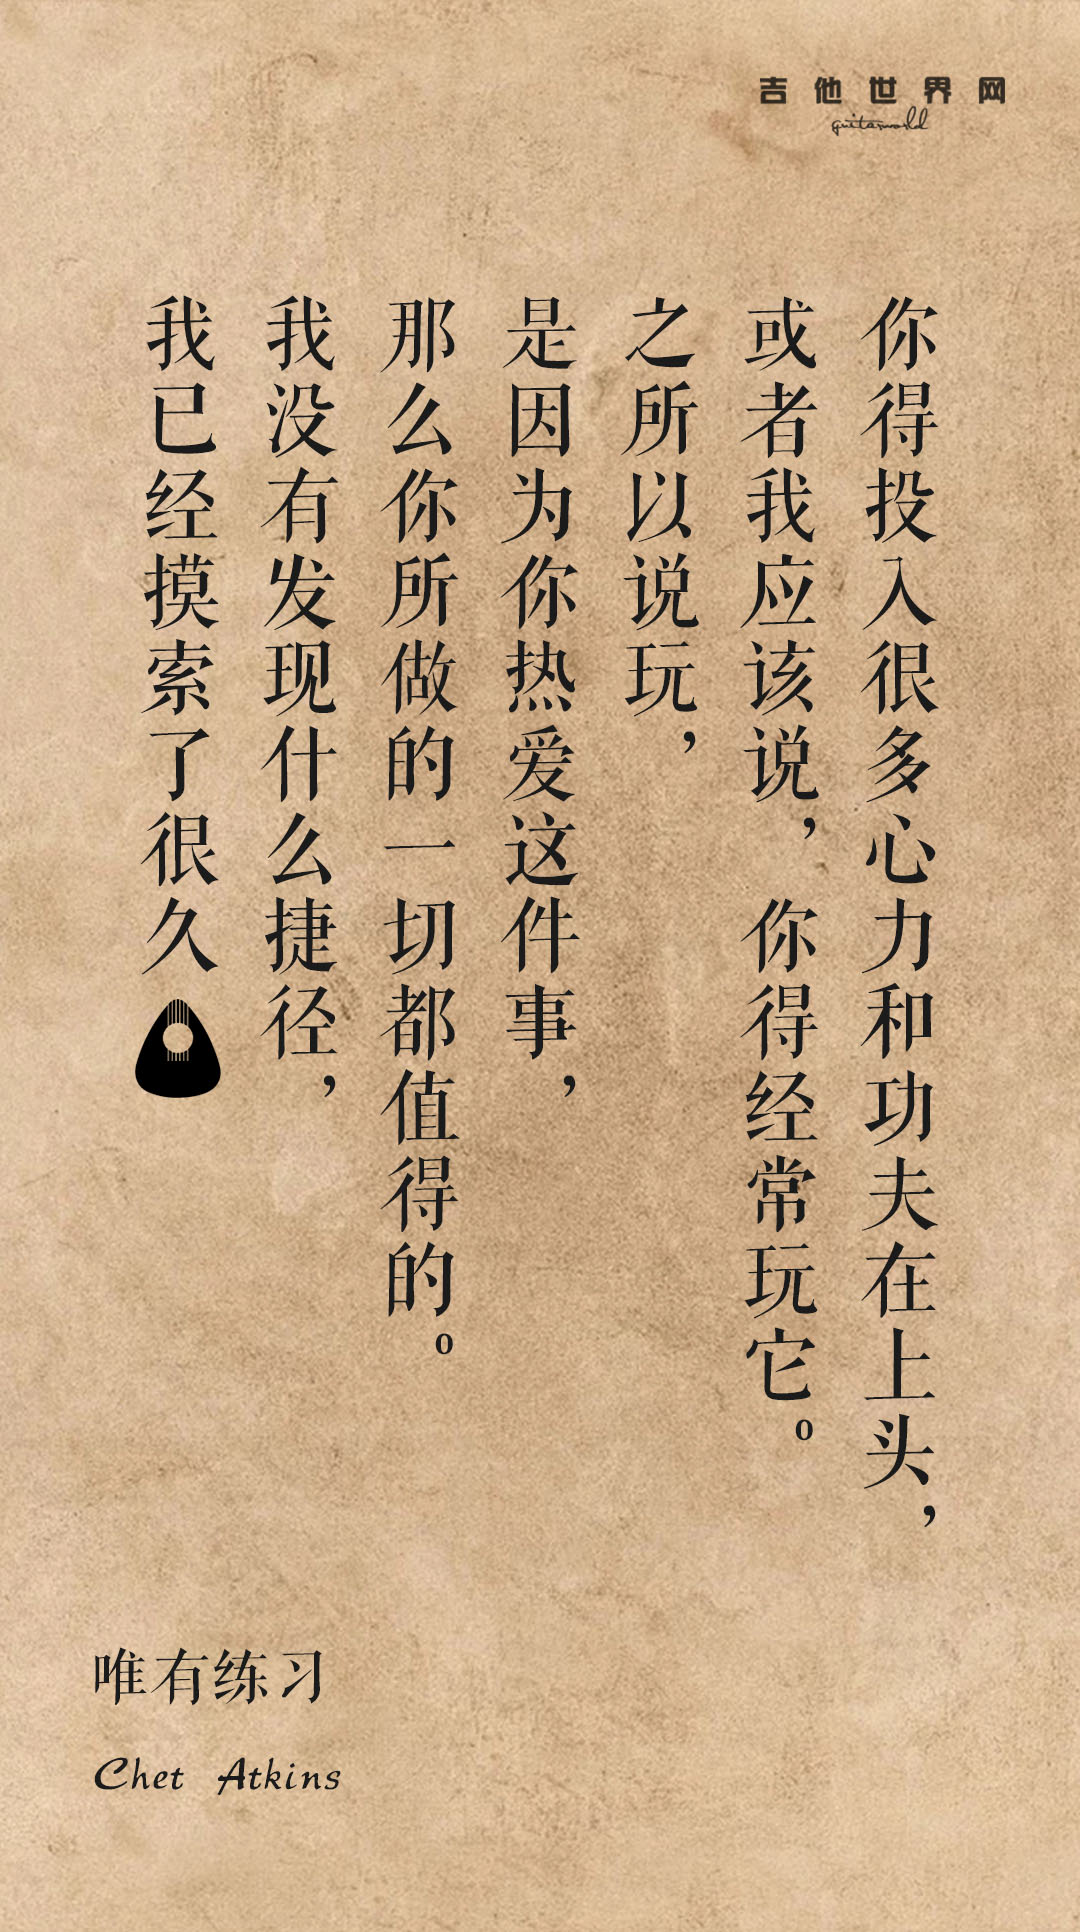 吉他世界网
guitarworld
你得投入很多心力和功夫在上头，
或者我应该说，你得经常玩它。
之所以说玩，
是因为你热爱这件事，
那么你所做的一切都值得的。
我没有发现什么捷径，
我已经摸索了很久
唯有练习
Chet Atkins